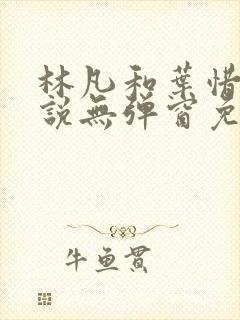 林凡和葉惜
說無彈窗免
牛魚貫